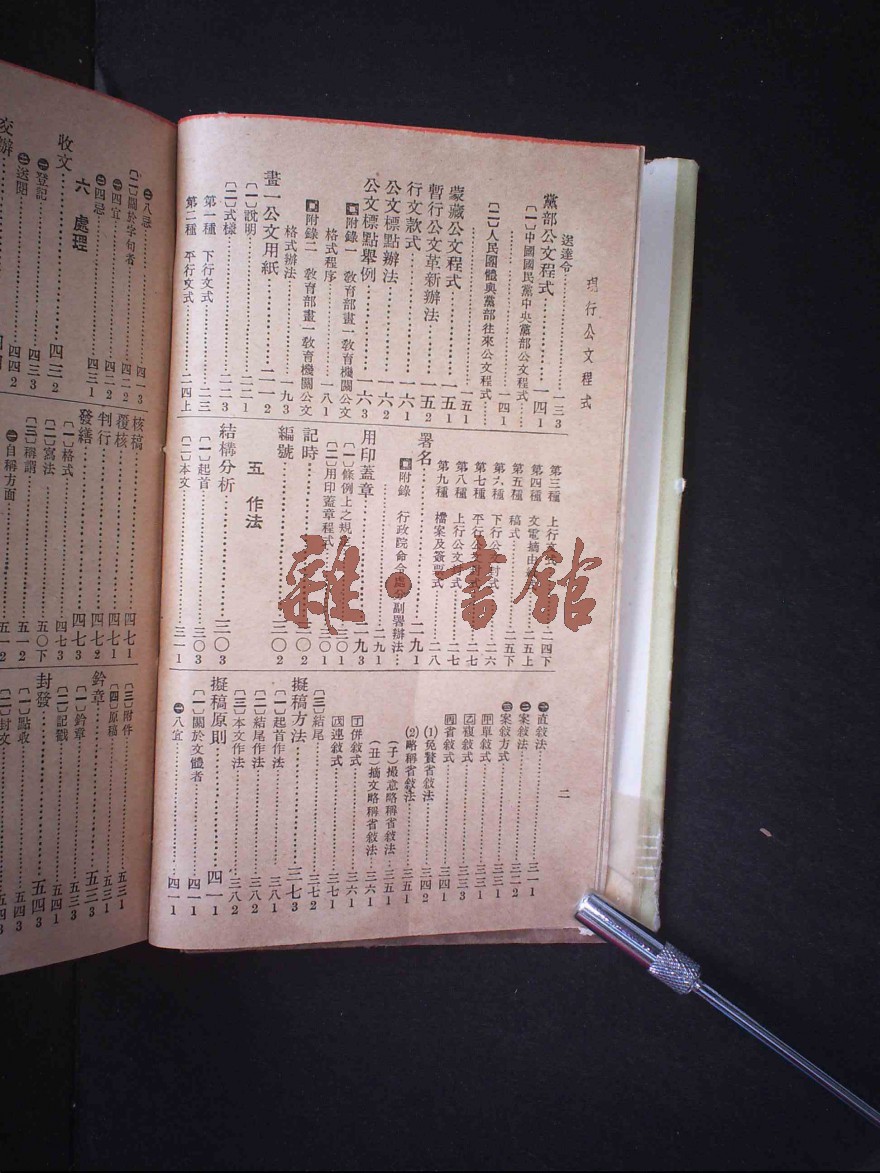 現行公文程式
二
送達令……一三3
黨部公文程式……一四1
〔一〕中國國民黨中央黨部公文程式……一四1
〔二〕人民團體與黨部往來公文程式……一五1
蒙藏公文程式……一五1
暫行公文革新辦法……一五2
行文款式……一六1
公文標點辦法……一六2
公文標點舉例……一六3
附錄一 教育部畫一教育機關公文
格式程序……一八1
附錄二 教育部畫一教育機關公文
格式辦法……一九3
畫一公文用紙……二一2
〔一〕說明……二二1
〔二〕式樣……二二3
第一種 下行文式……二三
第二種 平行文式……二四上
第三種 上行文式……二四下
第四種 文電摘由……二五上
第五種 稿式……二五下
第六種 下行公文封式……二六
第七種 平行公文封式……二七
第八種 上行公文封式……二七
第九種 檔案及簽票式……二八
署名……二九1
附錄 行政院命令處分副署辦法……二九1
用印蓋章……二九3
〔一〕條例上之規……三〇1
〔二〕用印蓋章程式……三〇1
記時……三〇2
編號……三〇2
五 作法
結構分析……三〇3
〔一〕起首……三〇3
〔二〕本文……三一1
㊀直敘法……三一1
㊁案敘法……三二2
㊂案敘方式……三三1
甲單敘式……三三1
乙複敘式……三三3
丙省敘式……三四1
(1)免贅省敘法……三四2
(2)略稱省敘法……三五1
(子)撮意略稱省敘法……三五1
(丑)摘文略稱省敘法……三六1
丁併敘式……三六1
戊連敘式……三七1
〔三〕結尾……三七2
擬稿方法……三七3
〔一〕起首作法……三八1
〔二〕結尾作法……三八2
〔三〕本文作法……三八2
擬稿原則……四一1
〔一〕關於文體者……四一1
㊀八宜……四一1
㊁八忌……四一3
〔二〕關於字句者……四二2
㊀四宜……四二2
㊁四忌……四三1
六 處理
收文……四三2
㊀登記……四三3
㊁送閱……四四2
交辦
核稿……四七1
覆核……四七1
判行……四七2
發繕……四七3
〔一〕格式……四七3
〔二〕寫法……五〇下
〔三〕稱謂……五一2
㊀自稱方面……五一2
〔三〕附件……五三1
〔四〕原稿……五三1
鈐章……五三3
〔一〕鈐章……五三3
〔二〕記戳……五四1
封發……五四3
〔一〕點收……五四3
〔二〕封文
雜·書館